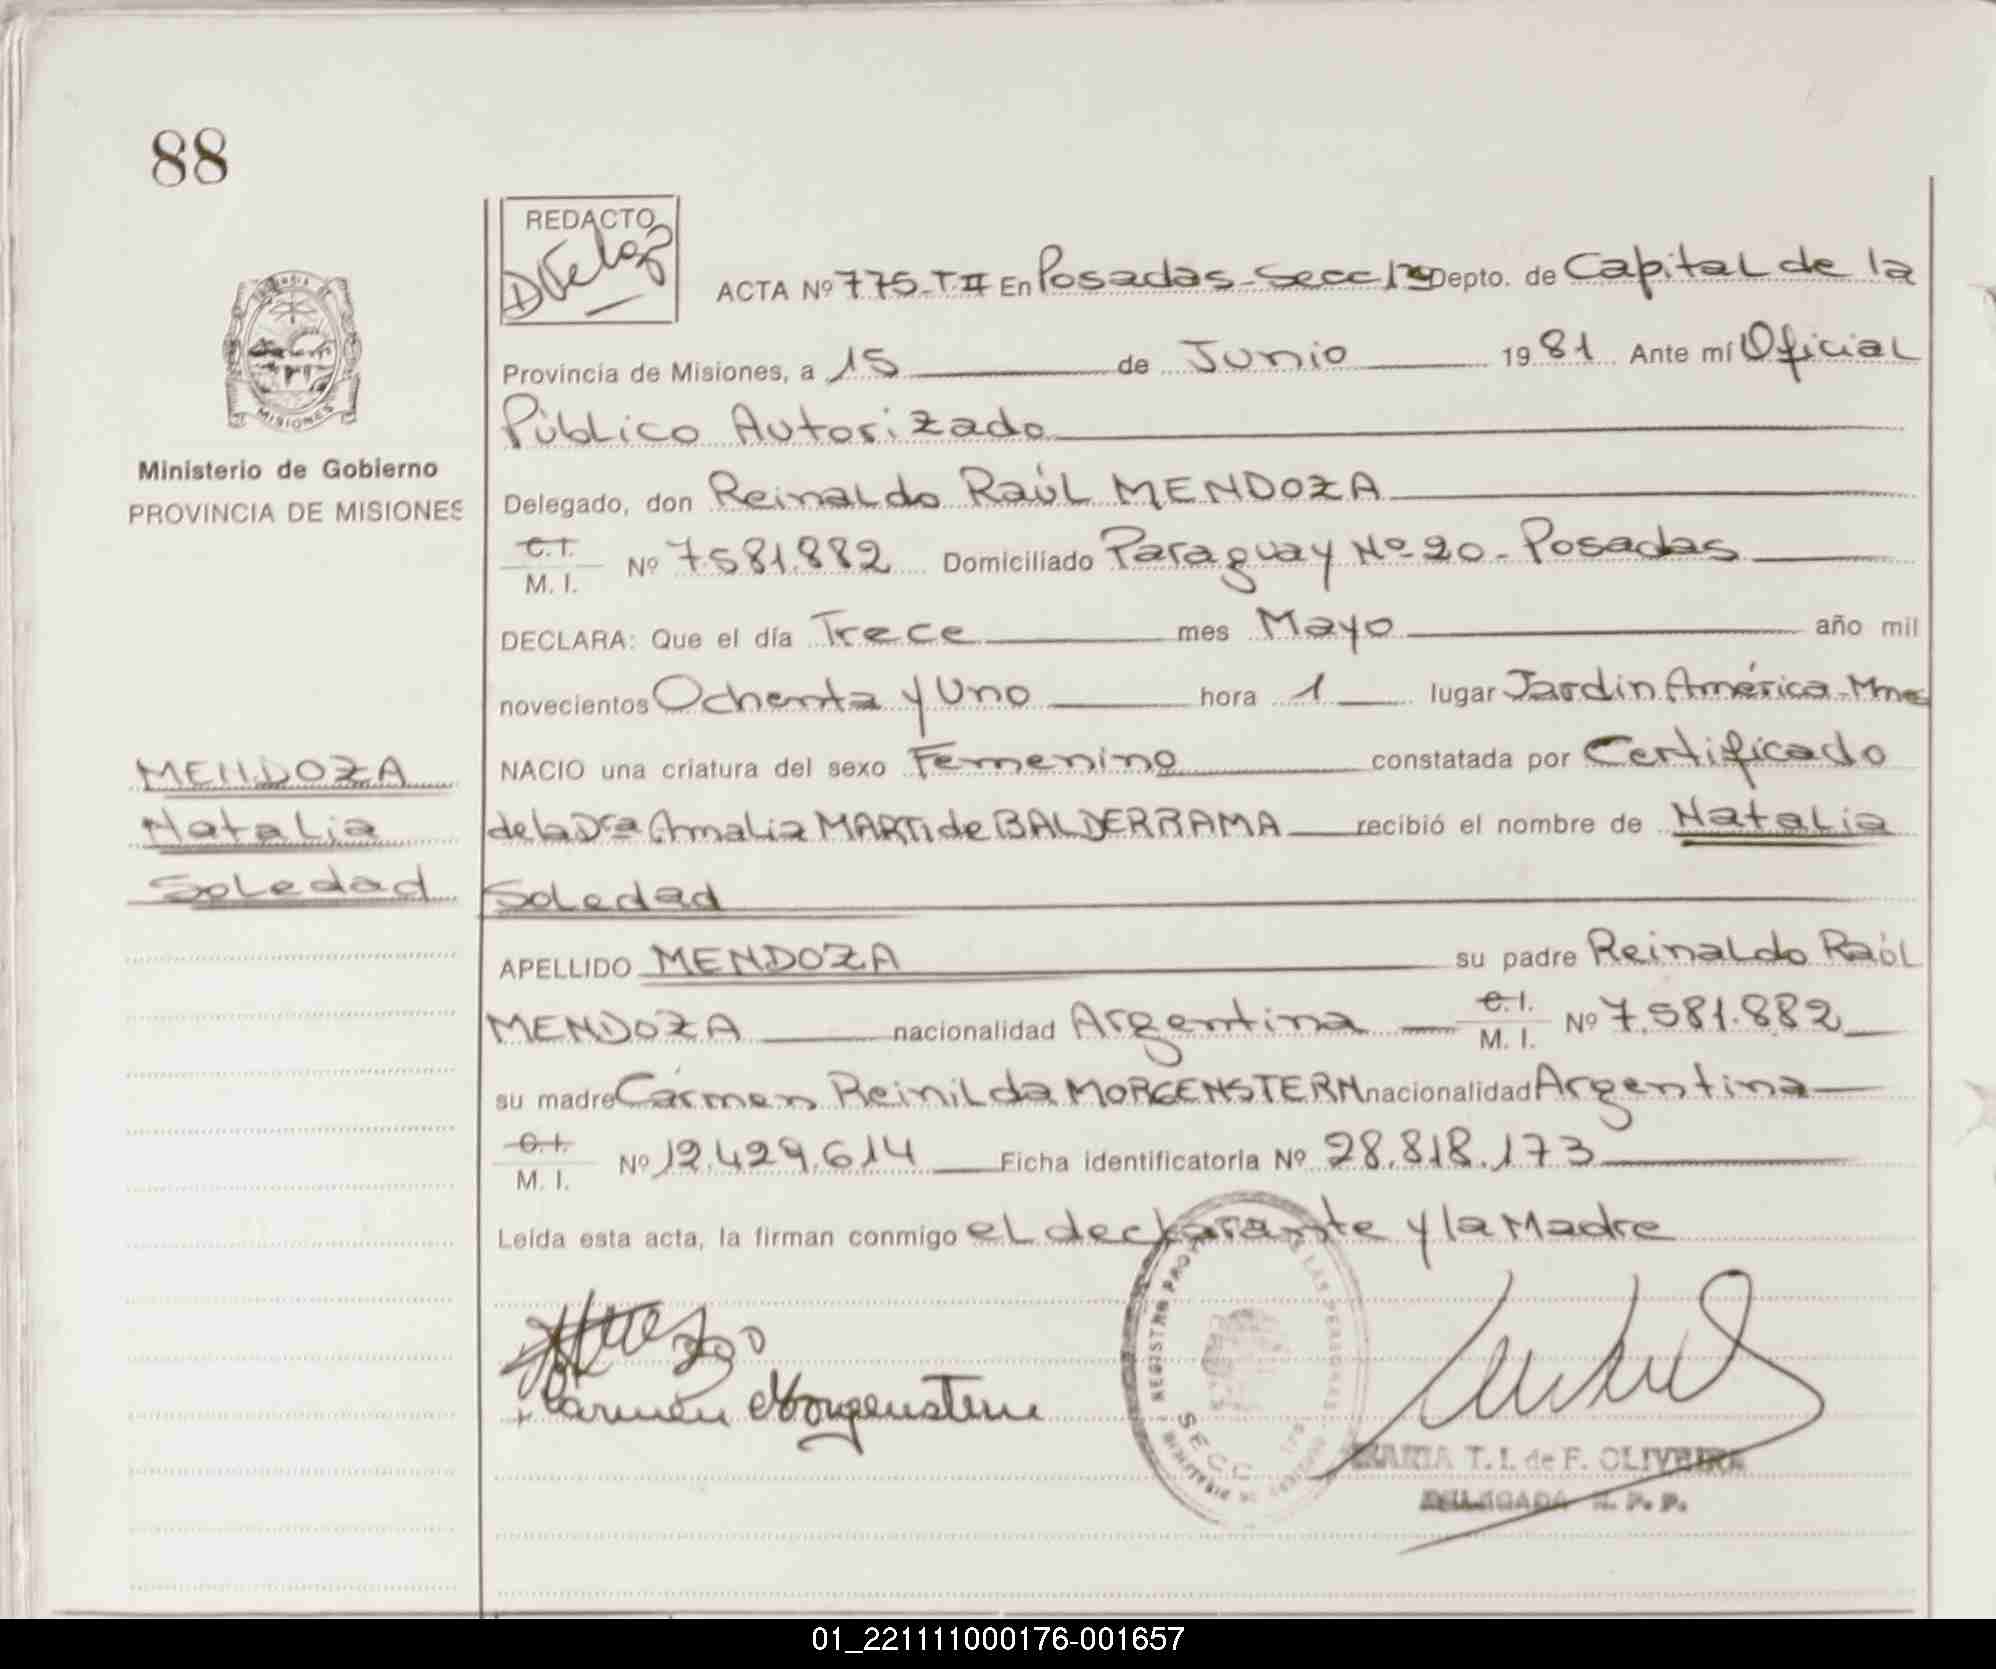 88
REDACTO
ACTA Nº 775-T II En Posadas - Secc 1ª Depto. de Capital de la
Provincia de Misiones, a 15 de Junio 1981 Ante mí Oficial
Público Autorizado
MISIONES
Ministerio de Gobierno
PROVINCIA DE MISIONES
Delegado, don Reinaldo Raúl MENDOZA
C.I.
M. I. Nº 7.581.882 Domiciliado Paraguay Nº 20 - Posadas
DECLARA: Que el día Trece mes Mayo año mil
novecientos Ochenta y Uno hora 1 lugar Jardin América - Mnes
NACIO una criatura del sexo Femenino constatada por Certificado
de la Dra Amalia MARTI de BALDERRAMA recibió el nombre de Natalia
Soledad
MENDOZA
Natalia
Soledad
APELLIDO MENDOZA su padre Reinaldo Raúl
MENDOZA nacionalidad Argentina C.I.
M. I. Nº 7.581.882
su madre Carmen Reinilda MORGENSTERN nacionalidad Argentina
C.I.
M. I. Nº 12.429.614 Ficha identificatoria Nº 28.818.173
Leída esta acta, la firman conmigo el declarante y la Madre
Carmen Morgenstern
REGISTRO LAS PERSONAS
SECC
MARIA T. I. de F. OLIVEIRA
DELEGADA R. P. P.
01_221111000176-001657